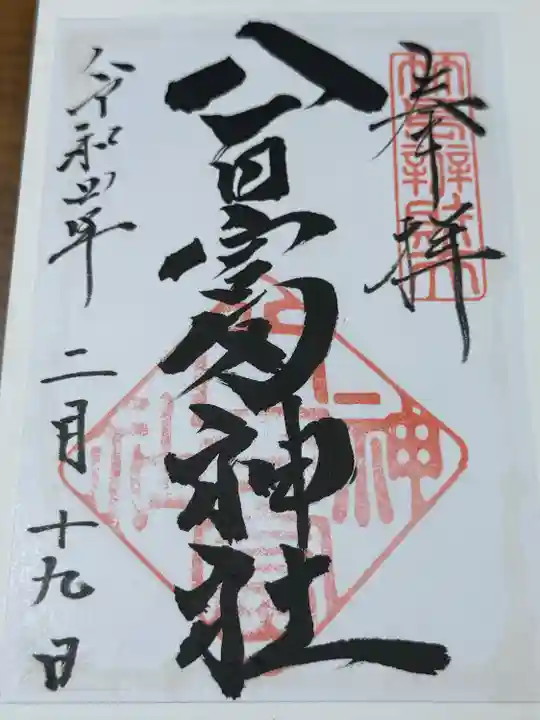 奉拝
八百富神社
令和四年 二月 十九日